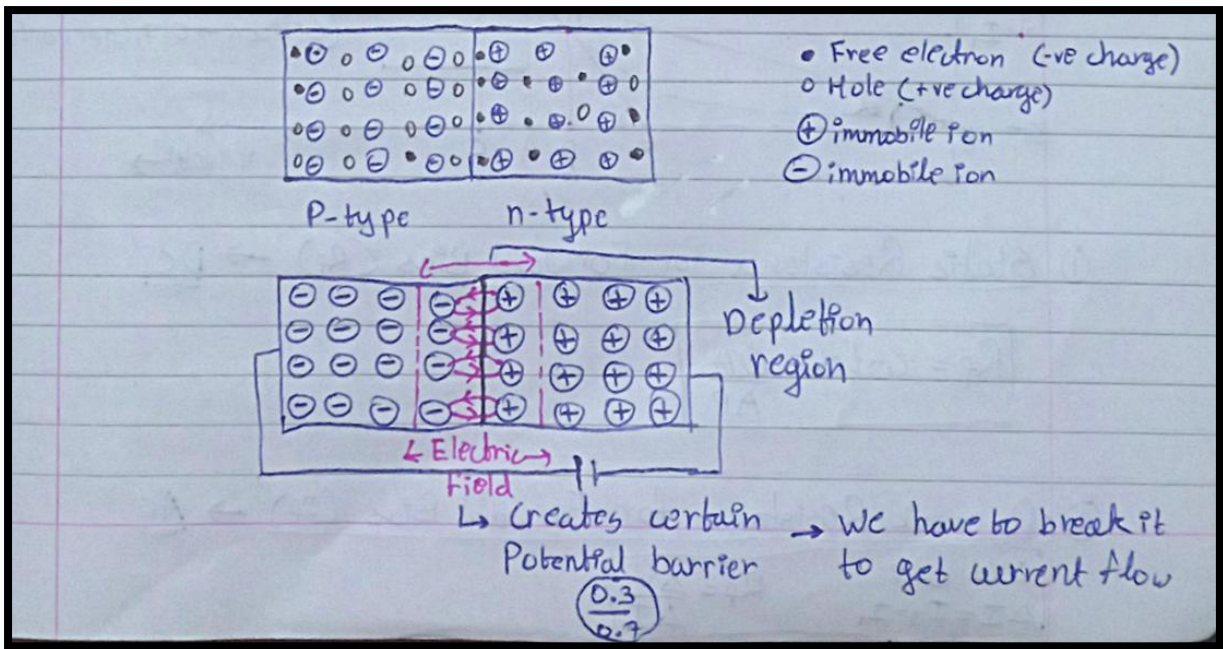 • Free electron (-ve charge)
o Hole (+ve charge)
⊕ immobile ion
⊖ immobile ion
P-type n-type
Depletion
region
Electric
field
↳ Creates certain → We have to break it
Potential barrier to get current flow
0.3
0.7